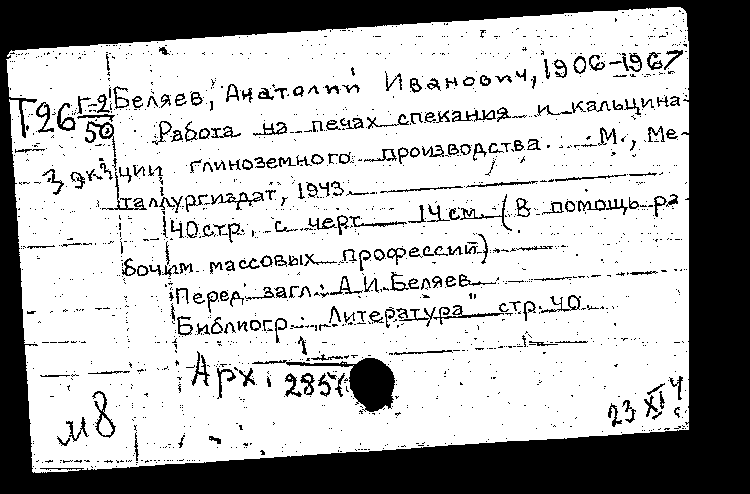 Т.26 Г-2 Беляев, Анатолий Иванович, 1906-1967
50 Работа на печах спекания и кальцина-
3 экз ции глиноземного производства. М., Ме-
таллургиздат, 1943.
40 стр., с черт 14 см. (В помощь ра-
бочим массовых профессий)
Перед загл.: А.И.Беляев
Библиогр.: „Литература" стр. 40
Арх. 1
м8 23 XI